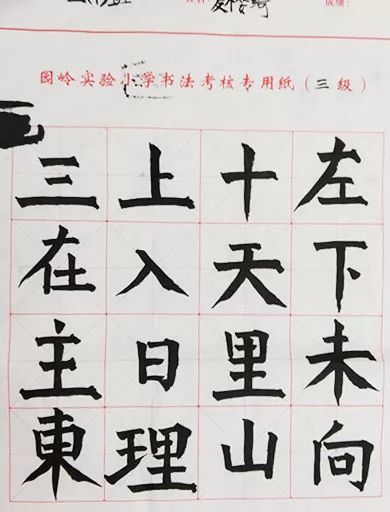 园岭实验小学书法考核专用纸(三级)
三上十左
在入天下
主日里未
東理山向